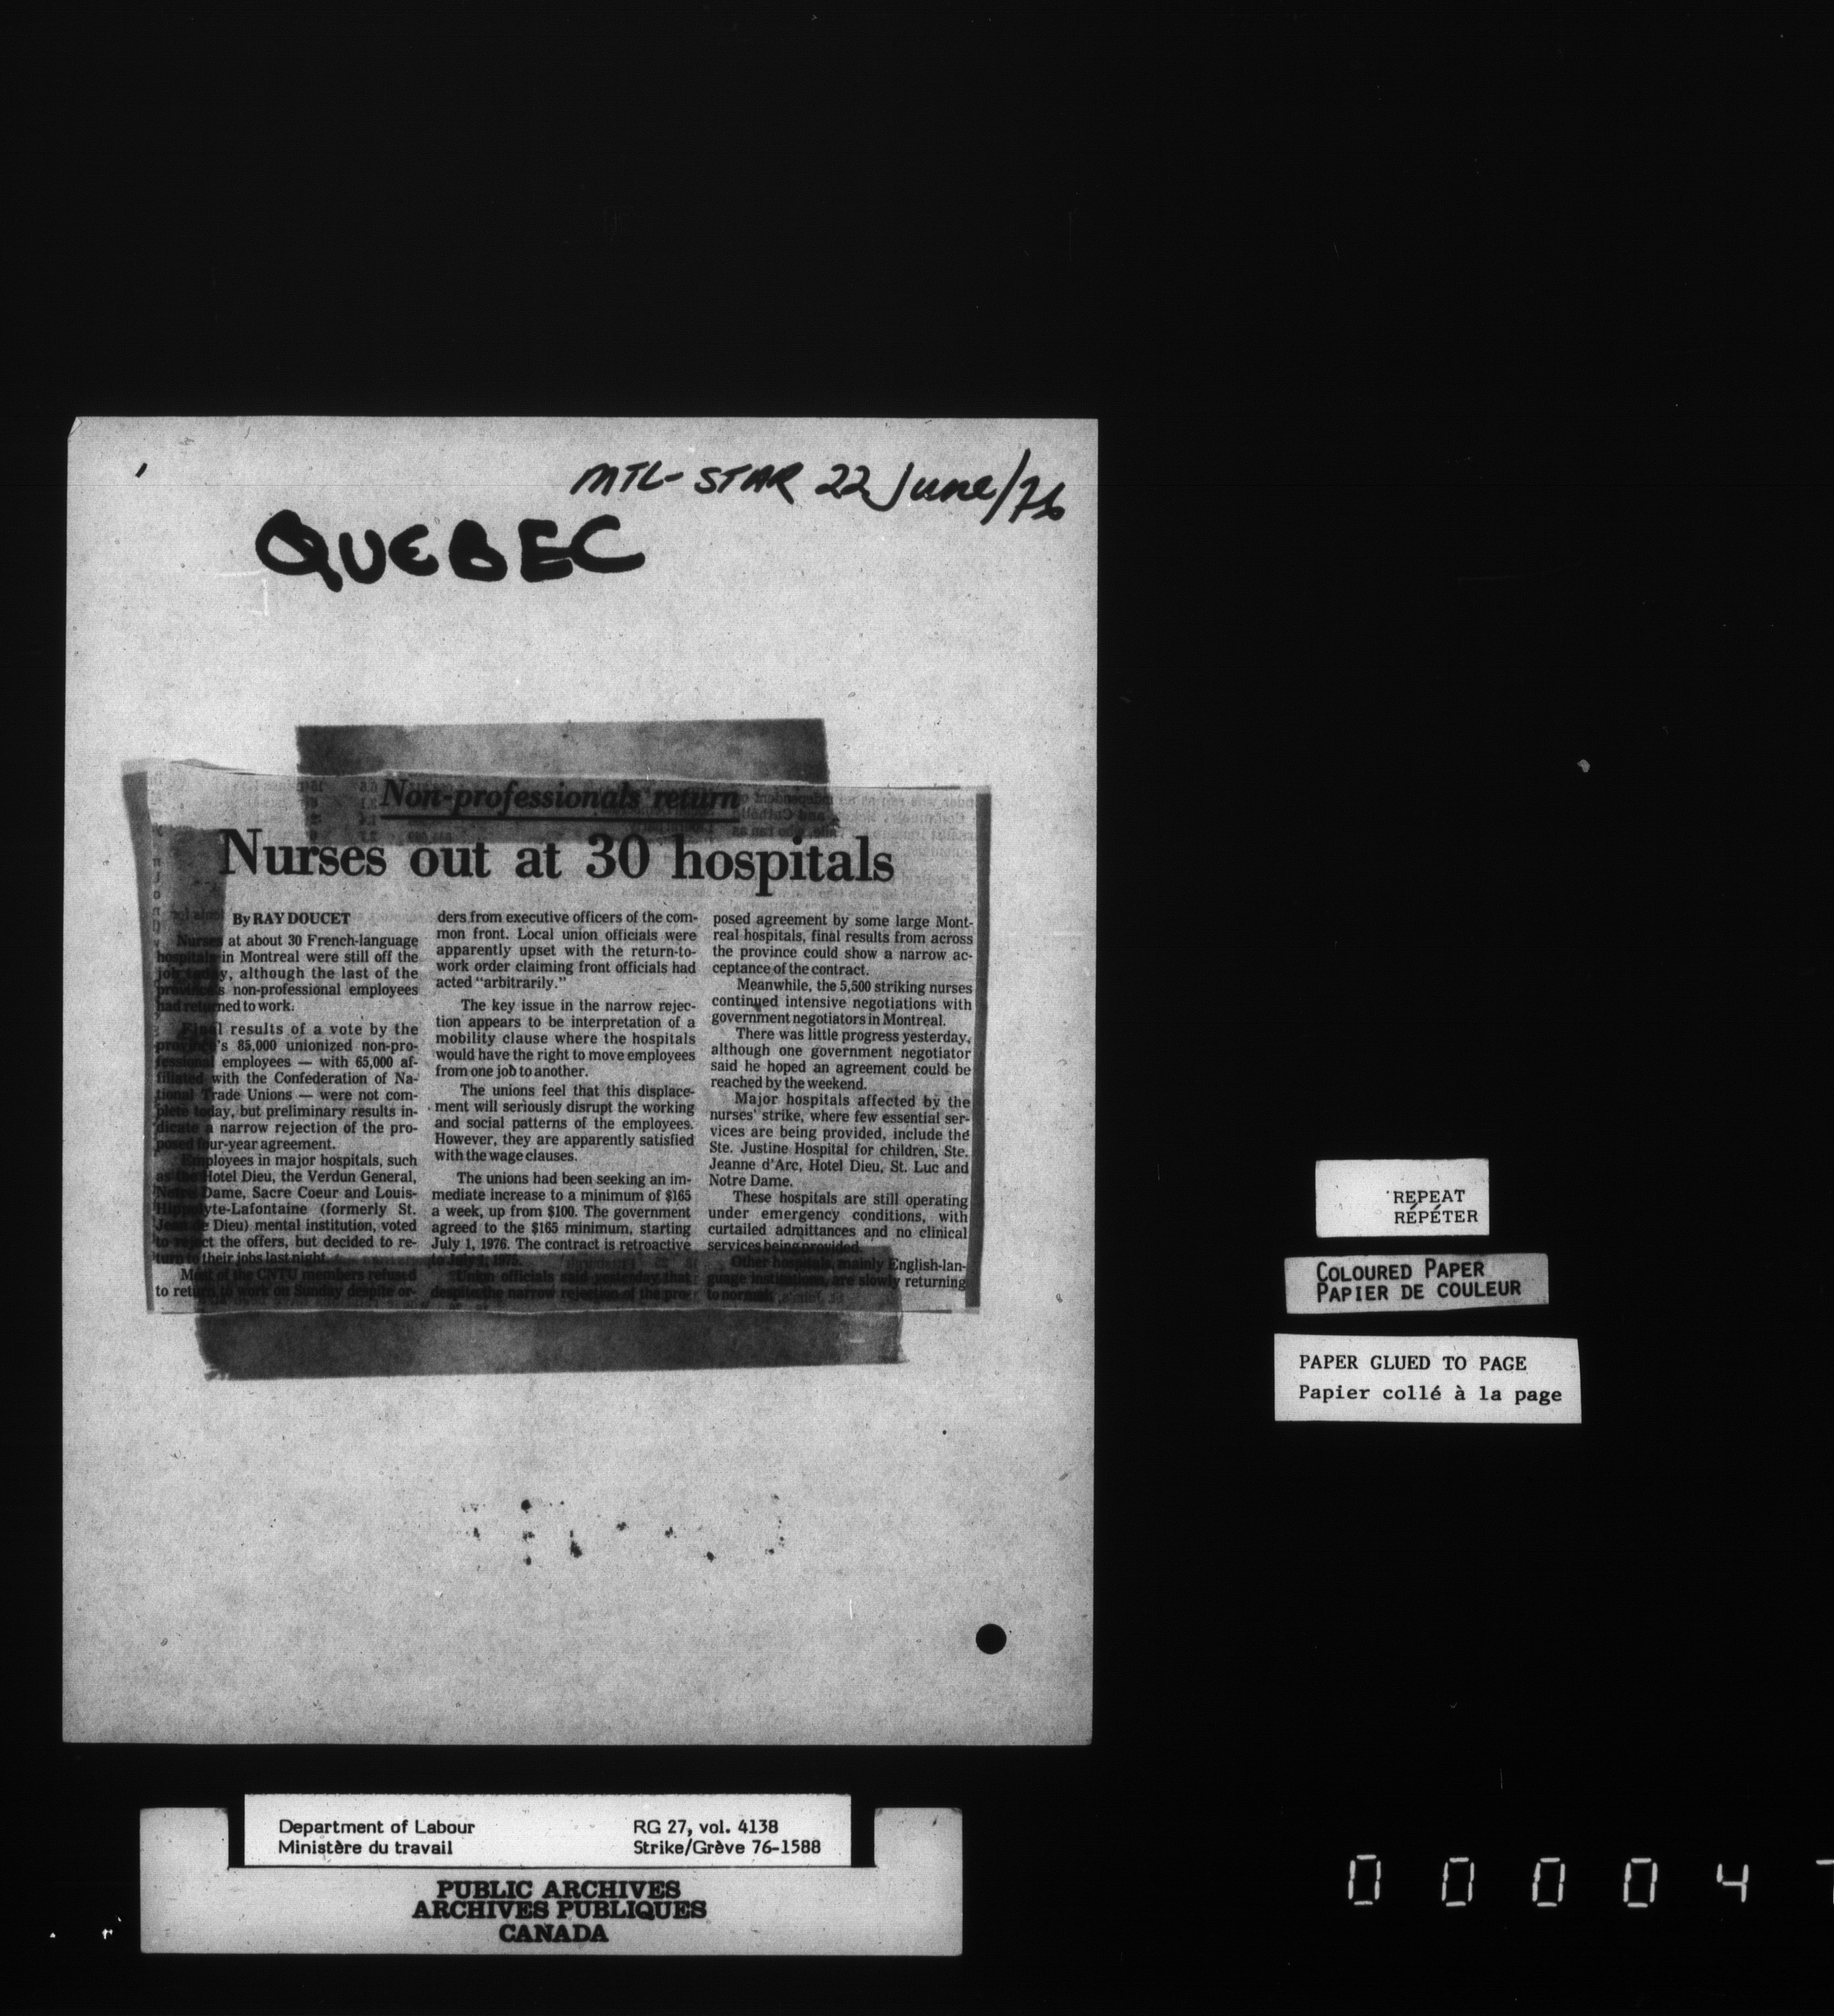 MTL-STAR 22 June/76
QUEBEC
Non-professionals return
Nurses out at 30 hospitals
By RAY DOUCET
Nurses at about 30 French-language
hospitals in Montreal were still off the
job today, although the last of the
province's non-professional employees
had returned to work.
Final results of a vote by the
province's 85,000 unionized non-pro-
fessional employees — with 65,000 af-
filiated with the Confederation of Na-
tional Trade Unions — were not com-
plete today, but preliminary results in-
dicate a narrow rejection of the pro-
posed four-year agreement.
Employees in major hospitals, such
as the Hotel Dieu, the Verdun General,
Notre Dame, Sacre Coeur and Louis-
Hippolyte-Lafontaine (formerly St.
Jean de Dieu) mental institution, voted
to reject the offers, but decided to re-
turn to their jobs last night.
Most of the CNTU members refused
to return to work on Sunday despite or-
ders from executive officers of the com-
mon front. Local union officials were
apparently upset with the return-to-
work order claiming front officials had
acted "arbitrarily."
The key issue in the narrow rejec-
tion appears to be interpretation of a
mobility clause where the hospitals
would have the right to move employees
from one job to another.
The unions feel that this displace-
ment will seriously disrupt the working
and social patterns of the employees.
However, they are apparently satisfied
with the wage clauses.
The unions had been seeking an im-
mediate increase to a minimum of $165
a week, up from $100. The government
agreed to the $165 minimum, starting
July 1, 1976. The contract is retroactive
to July 1, 1975.
Union officials said yesterday that
despite the narrow rejection of the pro-
posed agreement by some large Mont-
real hospitals, final results from across
the province could show a narrow ac-
ceptance of the contract.
Meanwhile, the 5,500 striking nurses
continued intensive negotiations with
government negotiators in Montreal.
There was little progress yesterday,
although one government negotiator
said he hoped an agreement could be
reached by the weekend.
Major hospitals affected by the
nurses' strike, where few essential ser-
vices are being provided, include the
Ste. Justine Hospital for children, Ste.
Jeanne d'Arc, Hotel Dieu, St. Luc and
Notre Dame.
These hospitals are still operating
under emergency conditions, with
curtailed admittances and no clinical
services being provided.
Other hospitals, mainly English-lan-
guage institutions, are slowly returning
to normal.
REPEAT
RÉPÉTER
COLOURED PAPER
PAPIER DE COULEUR
PAPER GLUED TO PAGE
Papier collé à la page
Department of Labour RG 27, vol. 4138
Ministère du travail Strike/Grève 76-1588
PUBLIC ARCHIVES
ARCHIVES PUBLIQUES
CANADA
0 0 0 0 4